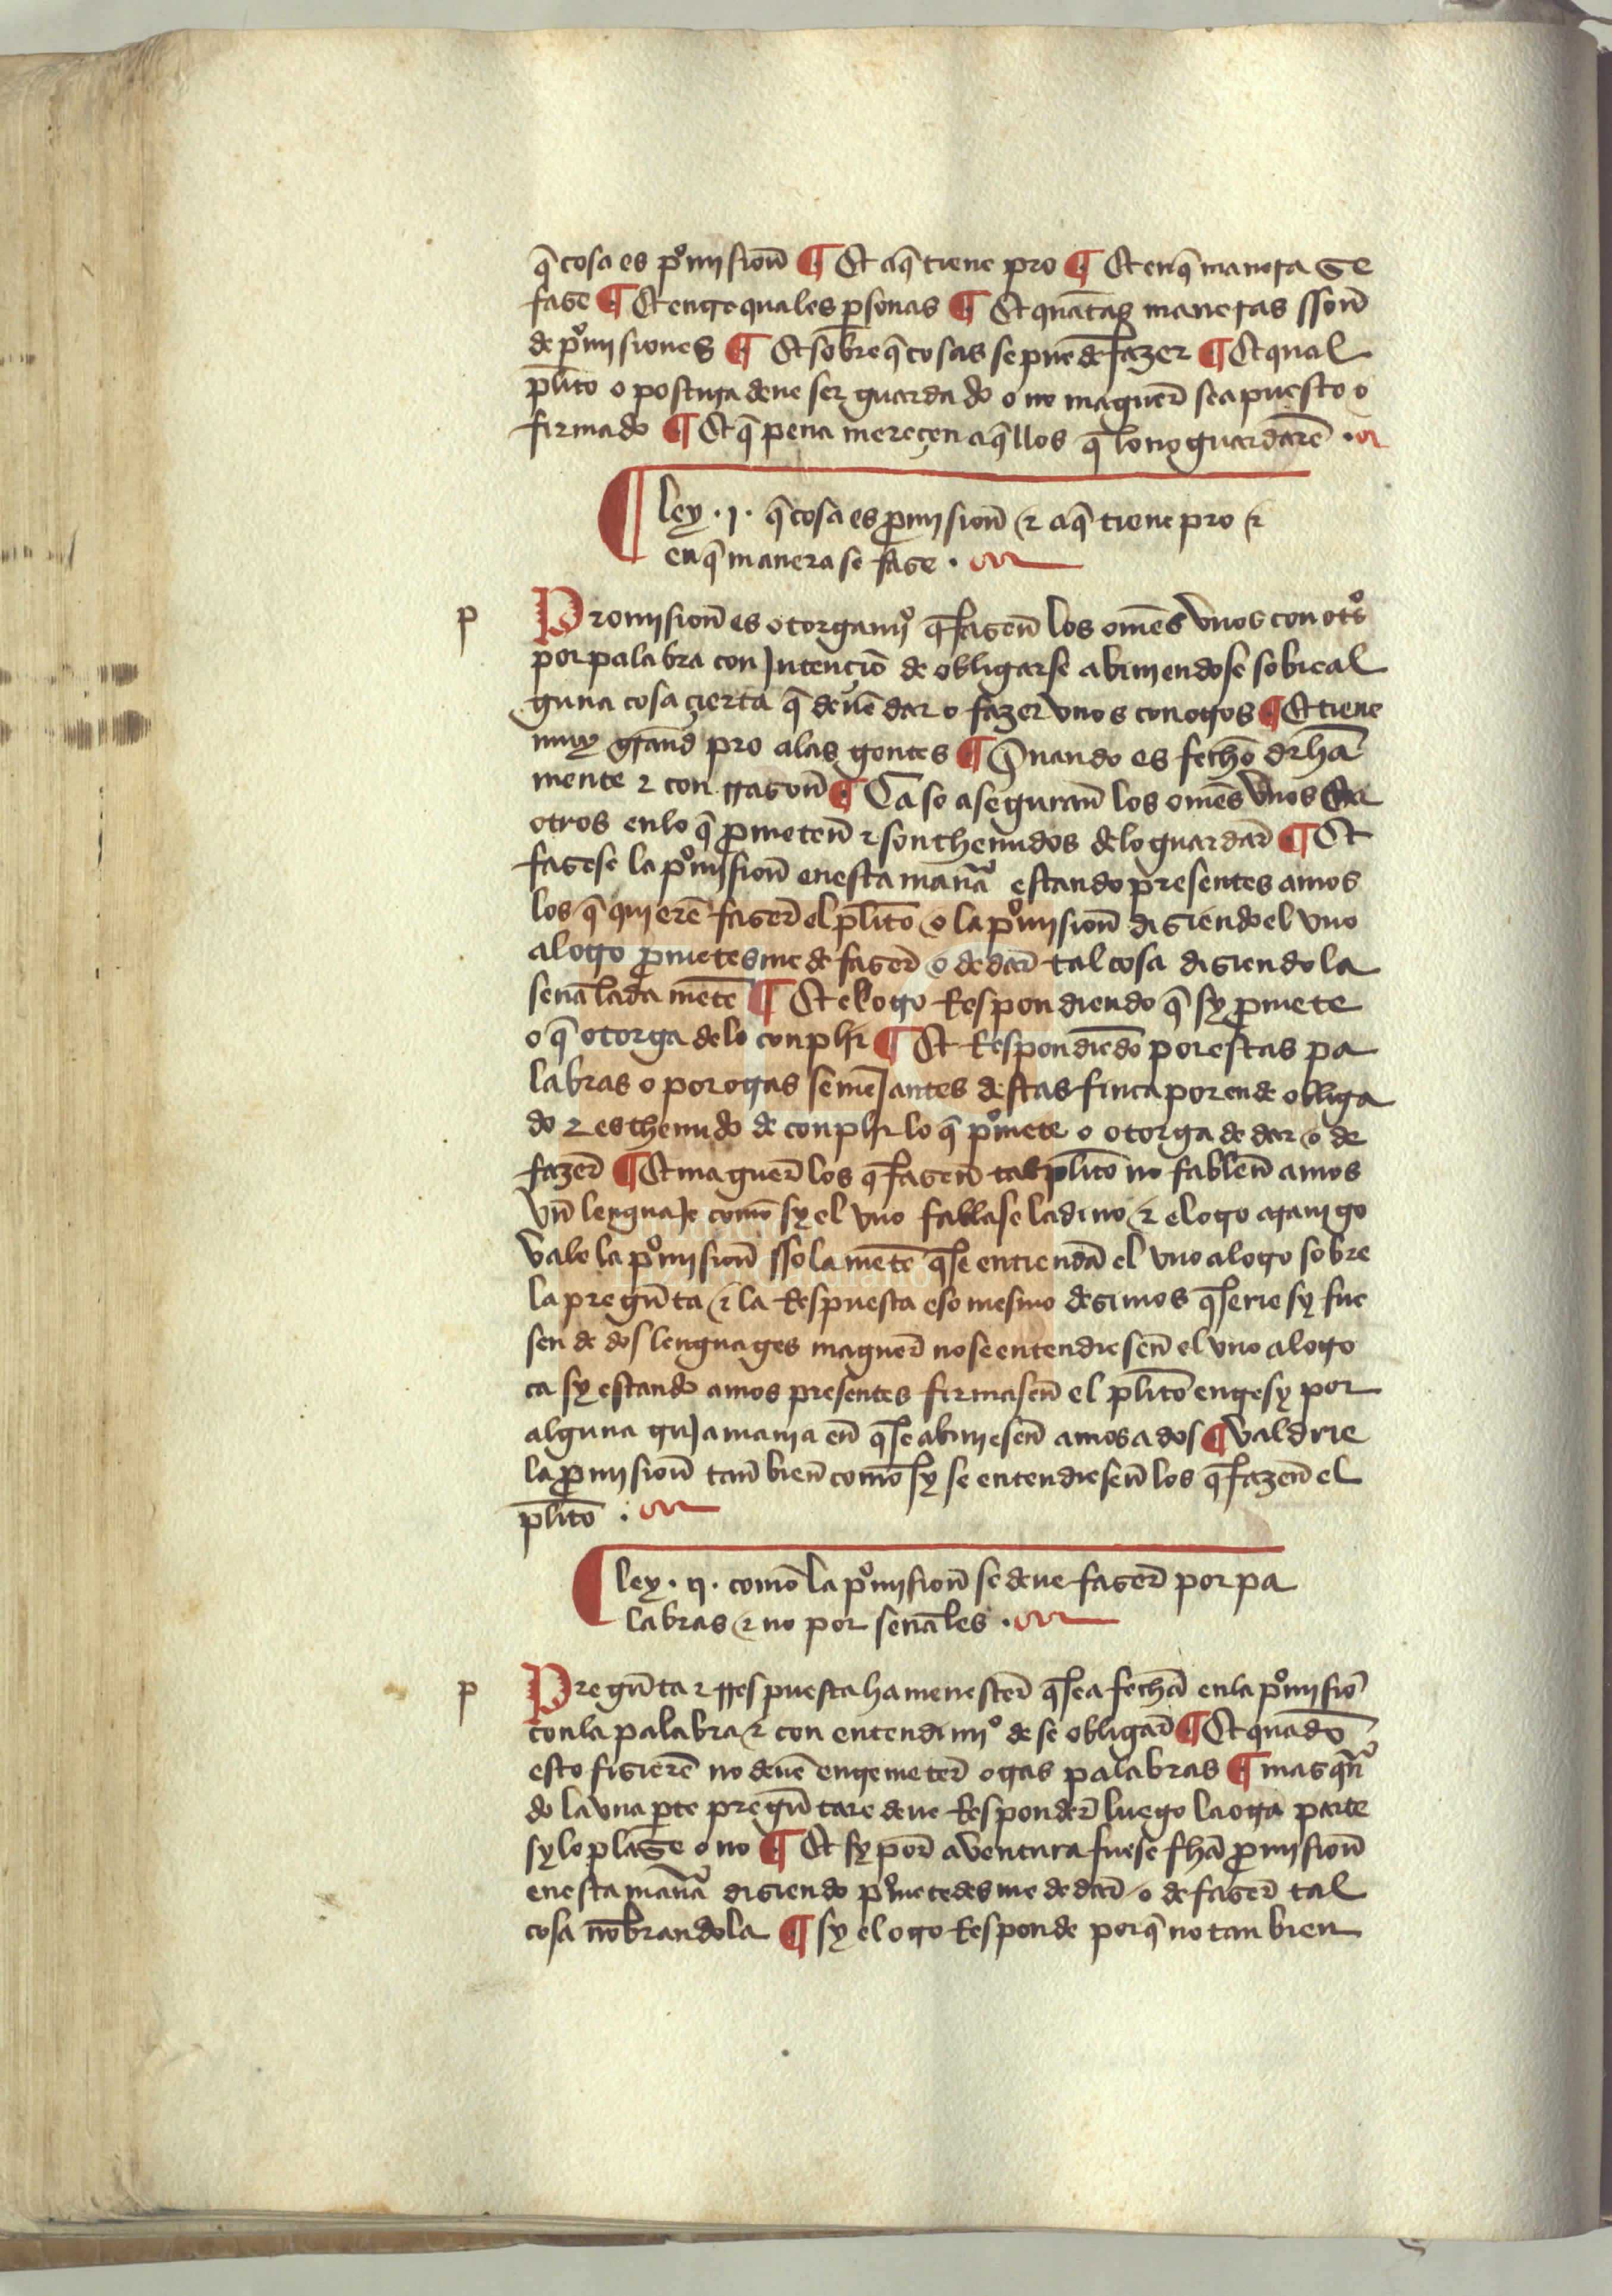 q̃ cosa es pºmision̄ ¶ Et aq̃ tiene pro ¶ Et enq̃ manera se
fase ¶ Et entre quales ꝑsonas ¶ Et quãtas maneras sson̄
de pºmisiones ¶ Et sobre q̃ cosas se pueden fazer ¶ Et qual
pl̃ito o postura deue ser guardado o no maguer̄ sea puesto o
firmado ¶ Et q̃ pena mereçen aq̃llos q̃ lo no guardarẽ .
¶ ley .j. q̃ cosa es ꝓmision̄ ⁊ aq̃ tiene pro ⁊
enq̃ manera se fase .
p Promision̄ es otorgamjº q̃ fasen̄ los om̃es vnos con otºs
por palabra con Jntençiõ de obligarse abinjendose sobre al
guna cosa çierta q̃ deuẽ dar o fazer vnos con otros ¶ Et tiene
muy grand̄ pro alas gentes ¶ Quando es fechõ drhã
mente ⁊ con rrason̄ ¶ Ca se aseguran̄ los om̃es vnos
otros enlo q̃ ꝓmeten̄ ⁊ son thenudos delo guardar̄ ¶ Et
fasese la pºmision̄ enesta manª estando presentes amos
los q̃ quierẽ faser̄ el pl̃ito o la pºmision̄ disiendo el vno
al otro ꝓmetes me de faser̄ o de dar̄ tal cosa disiendola
senãlada mẽte ¶ Et el otro Respondiendo q̃ sy ꝓmete
o q̃ otorga delo conplir ¶ Et Respondiẽdo por estas pa
labras o por otras semeJantes destas finca por ende obliga
do ⁊ es thenudo de conplir lo q̃ pºmete o otorga de dar o de
fazer̄ ¶ Et maguer̄ los q̃ fasen̄ tal pl̃ito no fablen̄ amos
vn̄ lenguaje comõ sy el vno fablase ladino ⁊ el otro arauigo
vale la pºmision̄ ssola mẽte q̃ se entiendã el vno al otro sobre
la pregun̄ta ⁊ la Respuesta eso mesmo desimos q̃ serie sy fue
sen de dos lenguages maguer̄ no se entendiesen̄ el vno al otro
ca sy estando amos presentes firmasen̄ el pl̃ito entre sy por
alguna en̄ q̃ se abiniesen̄ amos a dos ¶ valdrie
la ꝓmision̄ tan̄ bien̄ comõ sy se entendiesen̄ los q̃ fazen̄ el
pl̃ito .
¶ ley .ij. comõ la pºmision̄ se deue faser̄ por pa
labras ⁊ no por senãles .
p Pregun̄ta ⁊ rrespuesta ha menester̄ q̃ sea fechã enla pºmisiõ
con la palabra ⁊ con entendimjº de se obligar̄ ¶ Et quãdo
esto fisierẽ no deuẽ entremeter̄ otras palabras ¶ mas qºn
do la vna ꝑte pregun̄tare deue Responder̄ luego la otra parte
sy le plase o no ¶ Et sy por̄ aventura fuese fhã ꝓmision̄
enesta manª disiendo pºmetedes me de dar̄ o de faser̄ tal
cosa nõbrandola ¶ sy el otro Responde porq̃ no tan bien